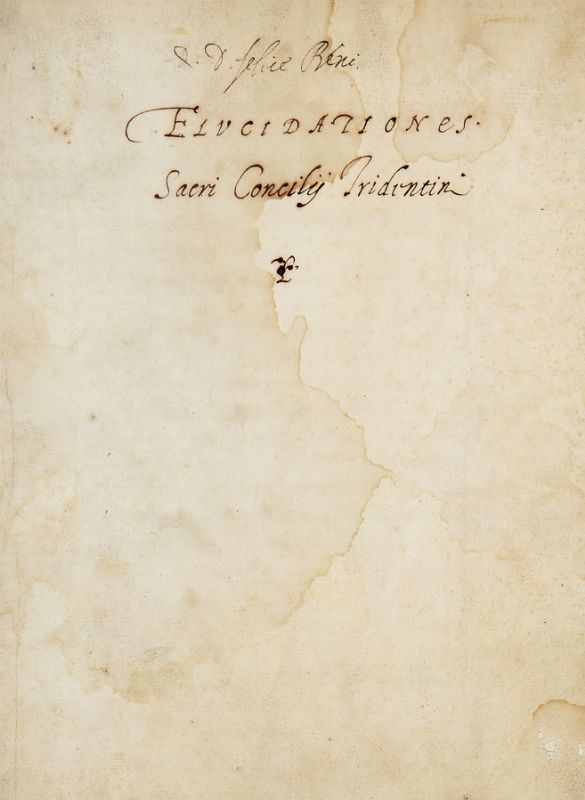 D. felice Réni
ELVCIDATIONES.
Sacri Concilij Tridentini